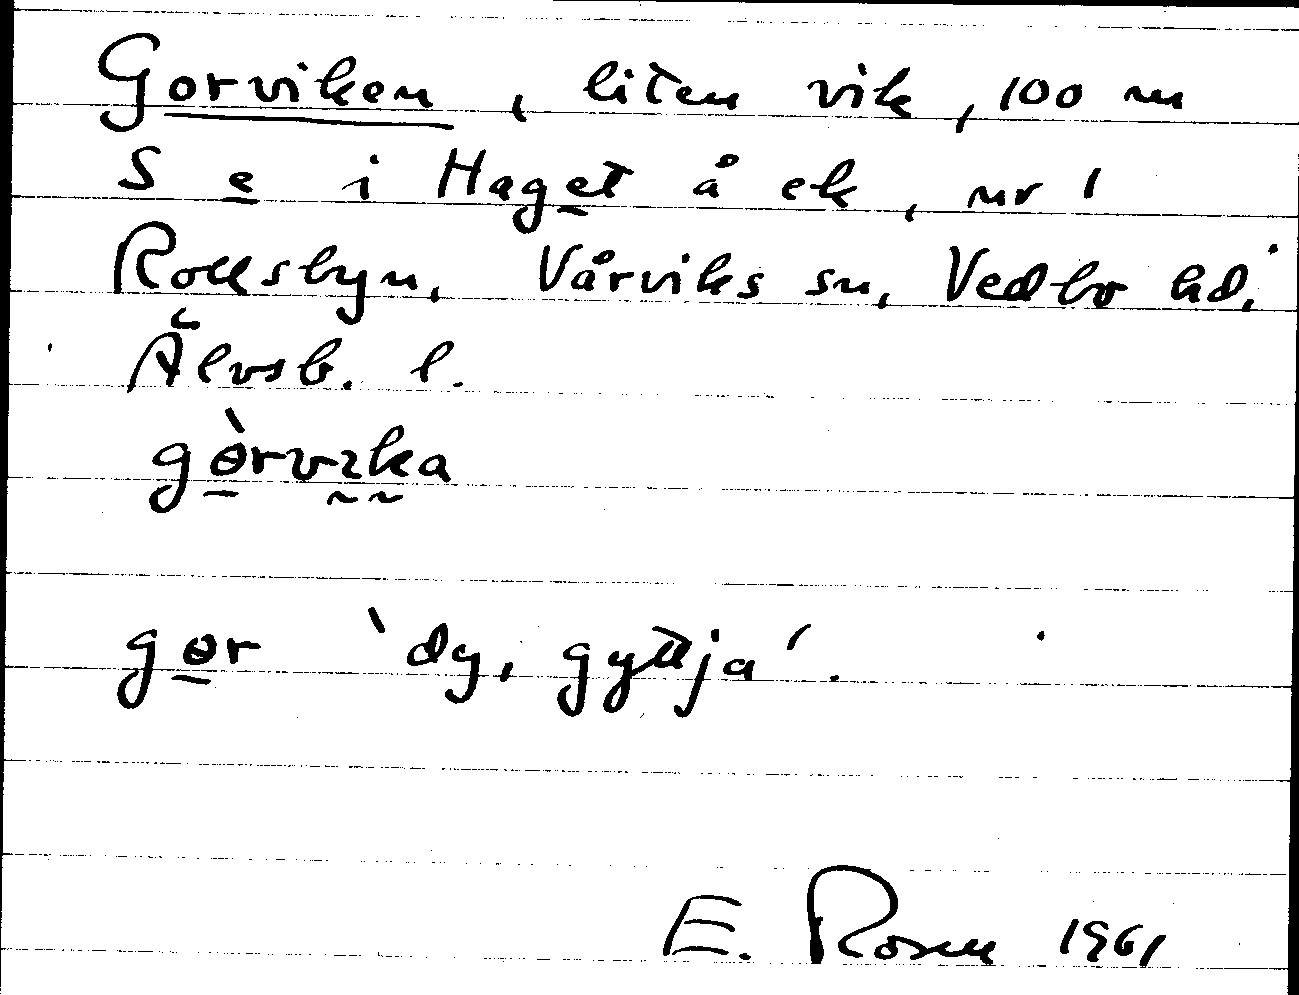 Gorviken, liten vik, 100 m
S e i Haget å ek, nr 1
Rollsbyn, Vårviks sn, Vedbo hd.
Älvsb. l.
gɵ̀rvıka
gɵr 'dy, gyttja'.
E. Rosen 1961